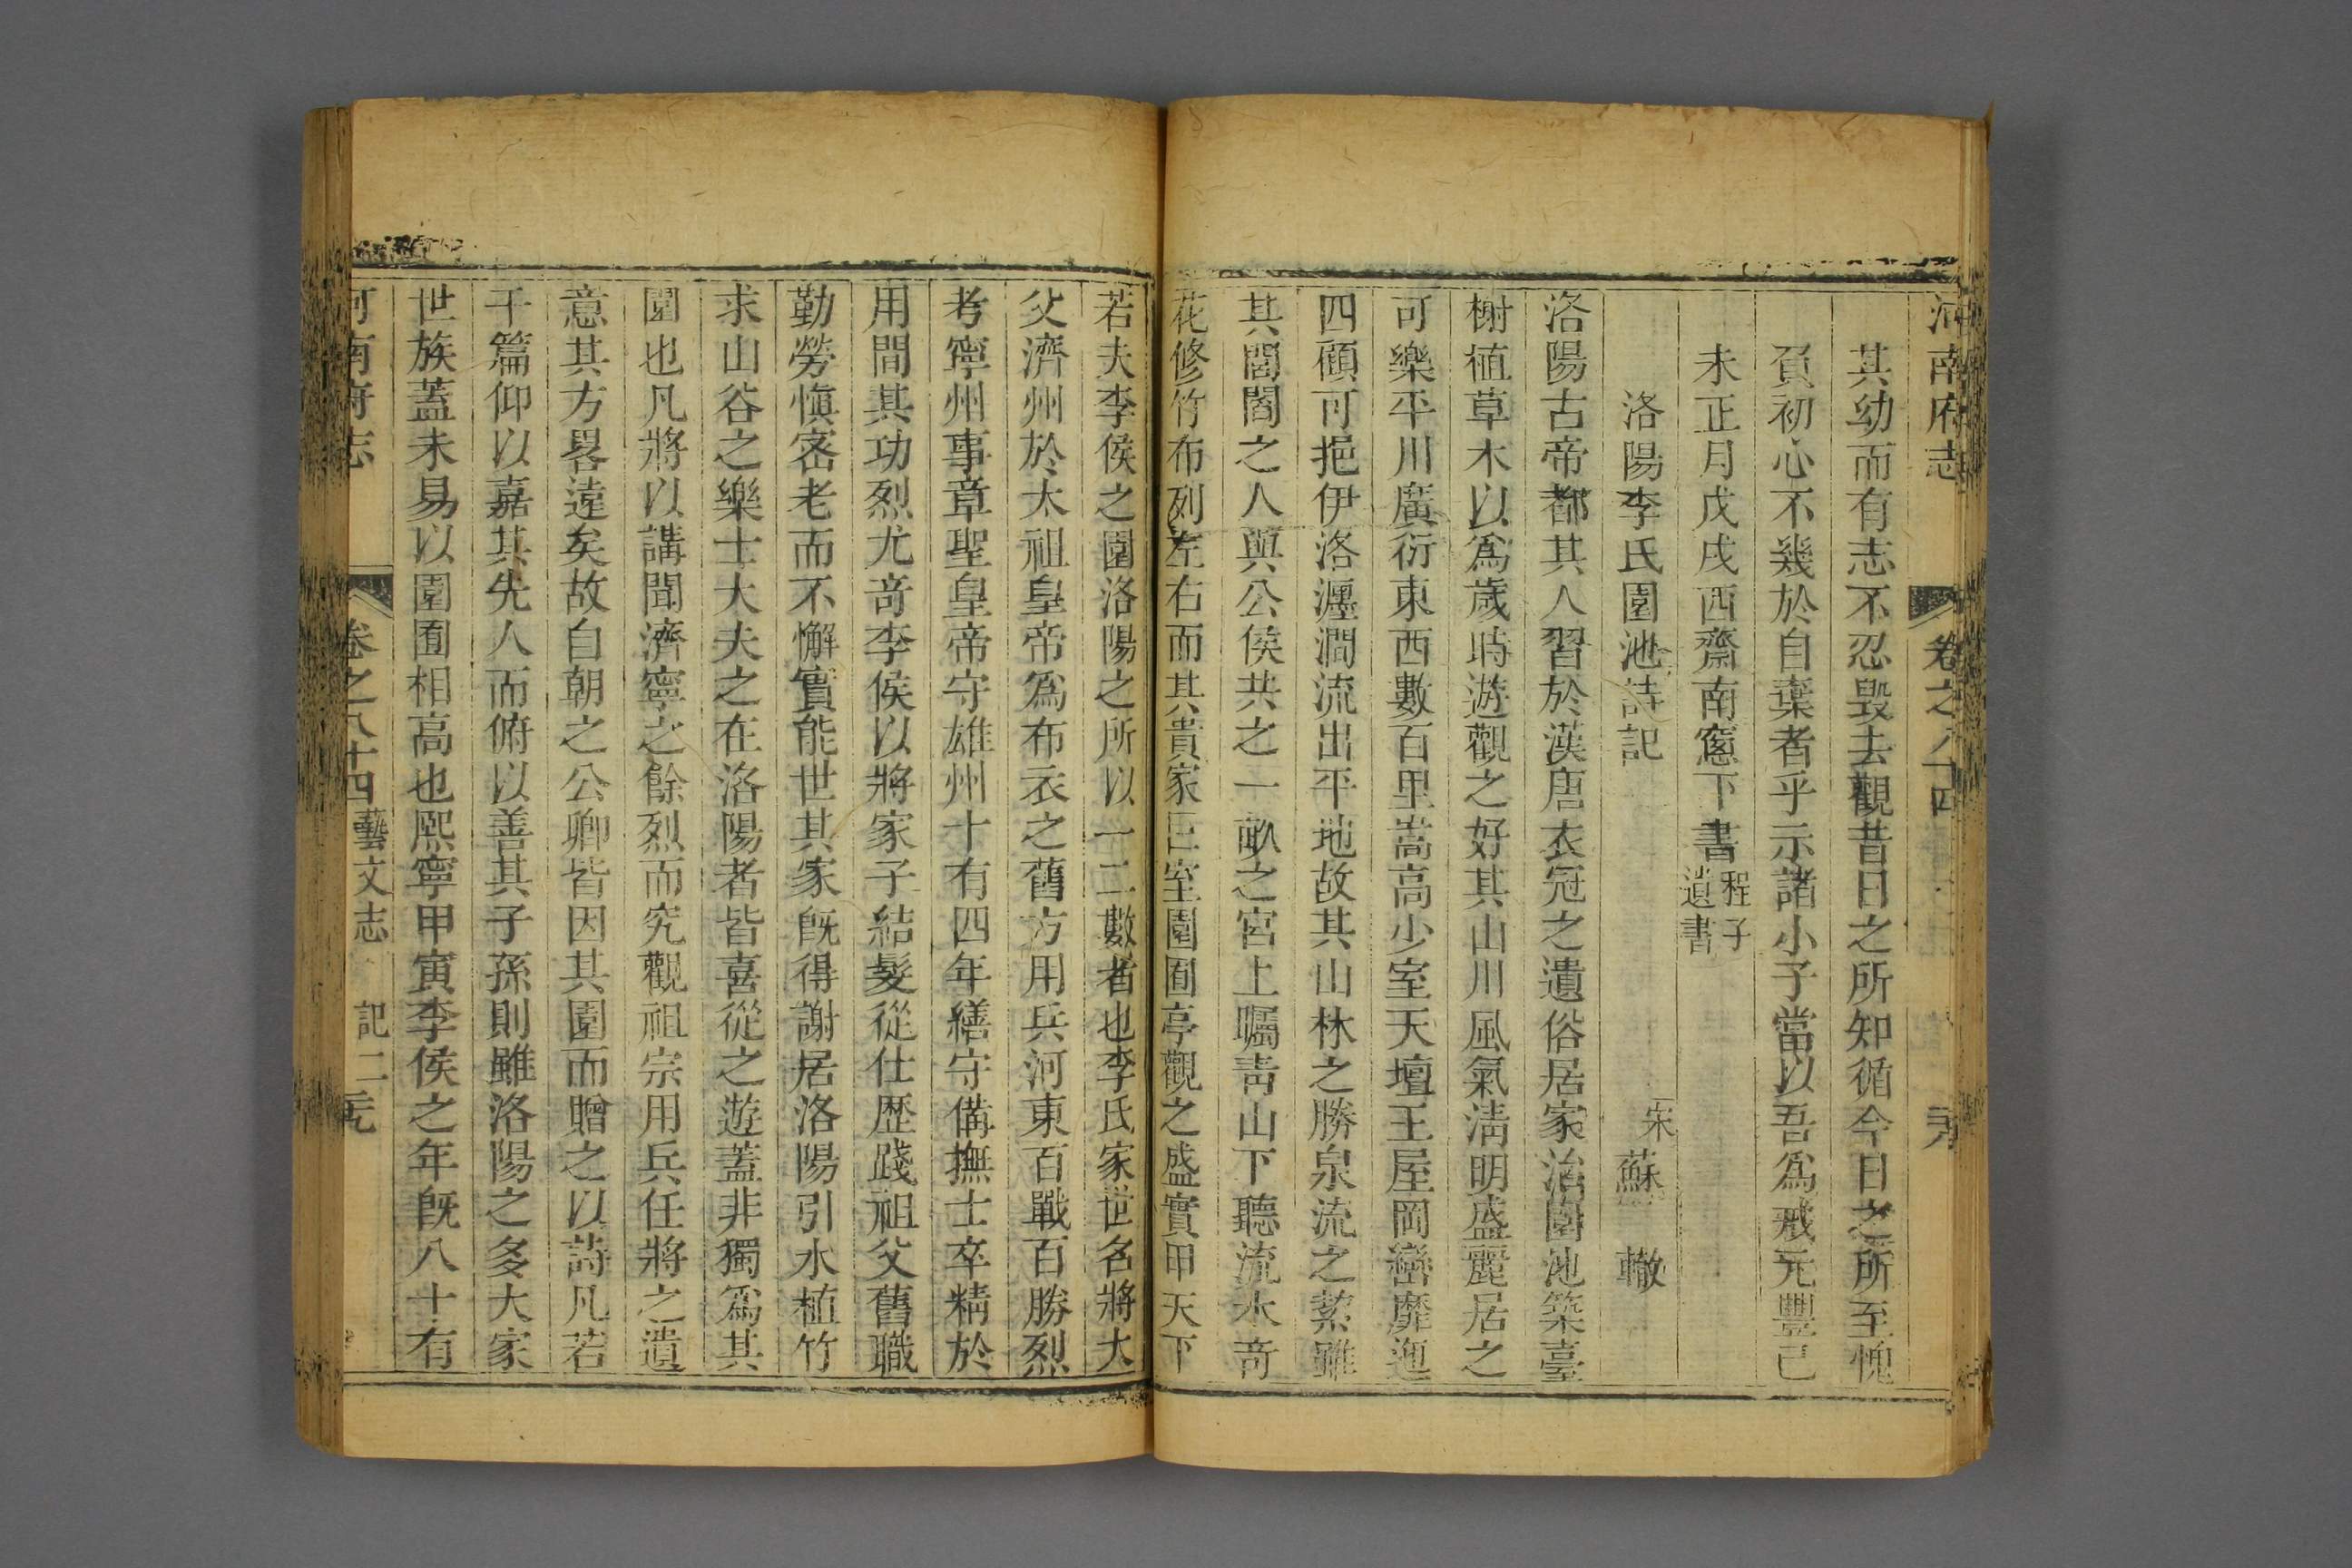 河南府志 卷之八十四
其幼而有志不忍毁去觀昔日之所知循今日之所至愧
負初心不幾於自棄者乎示諸小子當以吾爲戒元豐己
未正月戊戌西齋南窻下書程子遺書
洛陽李氏園池詩記 宋 蘇 轍
洛陽古帝都其人習於漢唐衣冠之遺俗居家治園池築臺
榭植草木以爲歲時遊觀之好其山川風氣淸明盛麗居之
可樂平川廣衍東西數百里嵩高少室天壇王屋岡巒靡迤
四顧可挹伊洛瀍澗流出平地故其山林之勝泉流之絜雖
其閭閻之人與公侯共之一畝之宮上矚靑山下聽流水奇
花修竹布列左右而其貴家巨室園囿亭觀之盛實甲天下
若夫李侯之園洛陽之所以一二數者也李氏家世名將大
父濟州於太祖皇帝爲布衣之舊方用兵河東百戰百勝烈
考寧州事章聖皇帝守雄州十有四年繕守備撫士卒精於
用間其功烈尤奇李侯以將家子結髮從仕歷踐祖父舊職
勤勞愼宻老而不懈實能世其家旣得謝居洛陽引水植竹
求山谷之樂士大夫之在洛陽者皆喜從之遊蓋非獨爲其
園也凡將以講聞濟寧之餘烈而究觀祖宗用兵任將之遺
意其方畧遠矣故自朝之公卿皆因其園而贈之以詩凡若
干篇仰以嘉其先人而俯以善其子孫則雖洛陽之多大家
世族蓋未易以園囿相高也熙寧甲寅李侯之年旣八十有
河南府志 卷之八十四 藝文志 記二